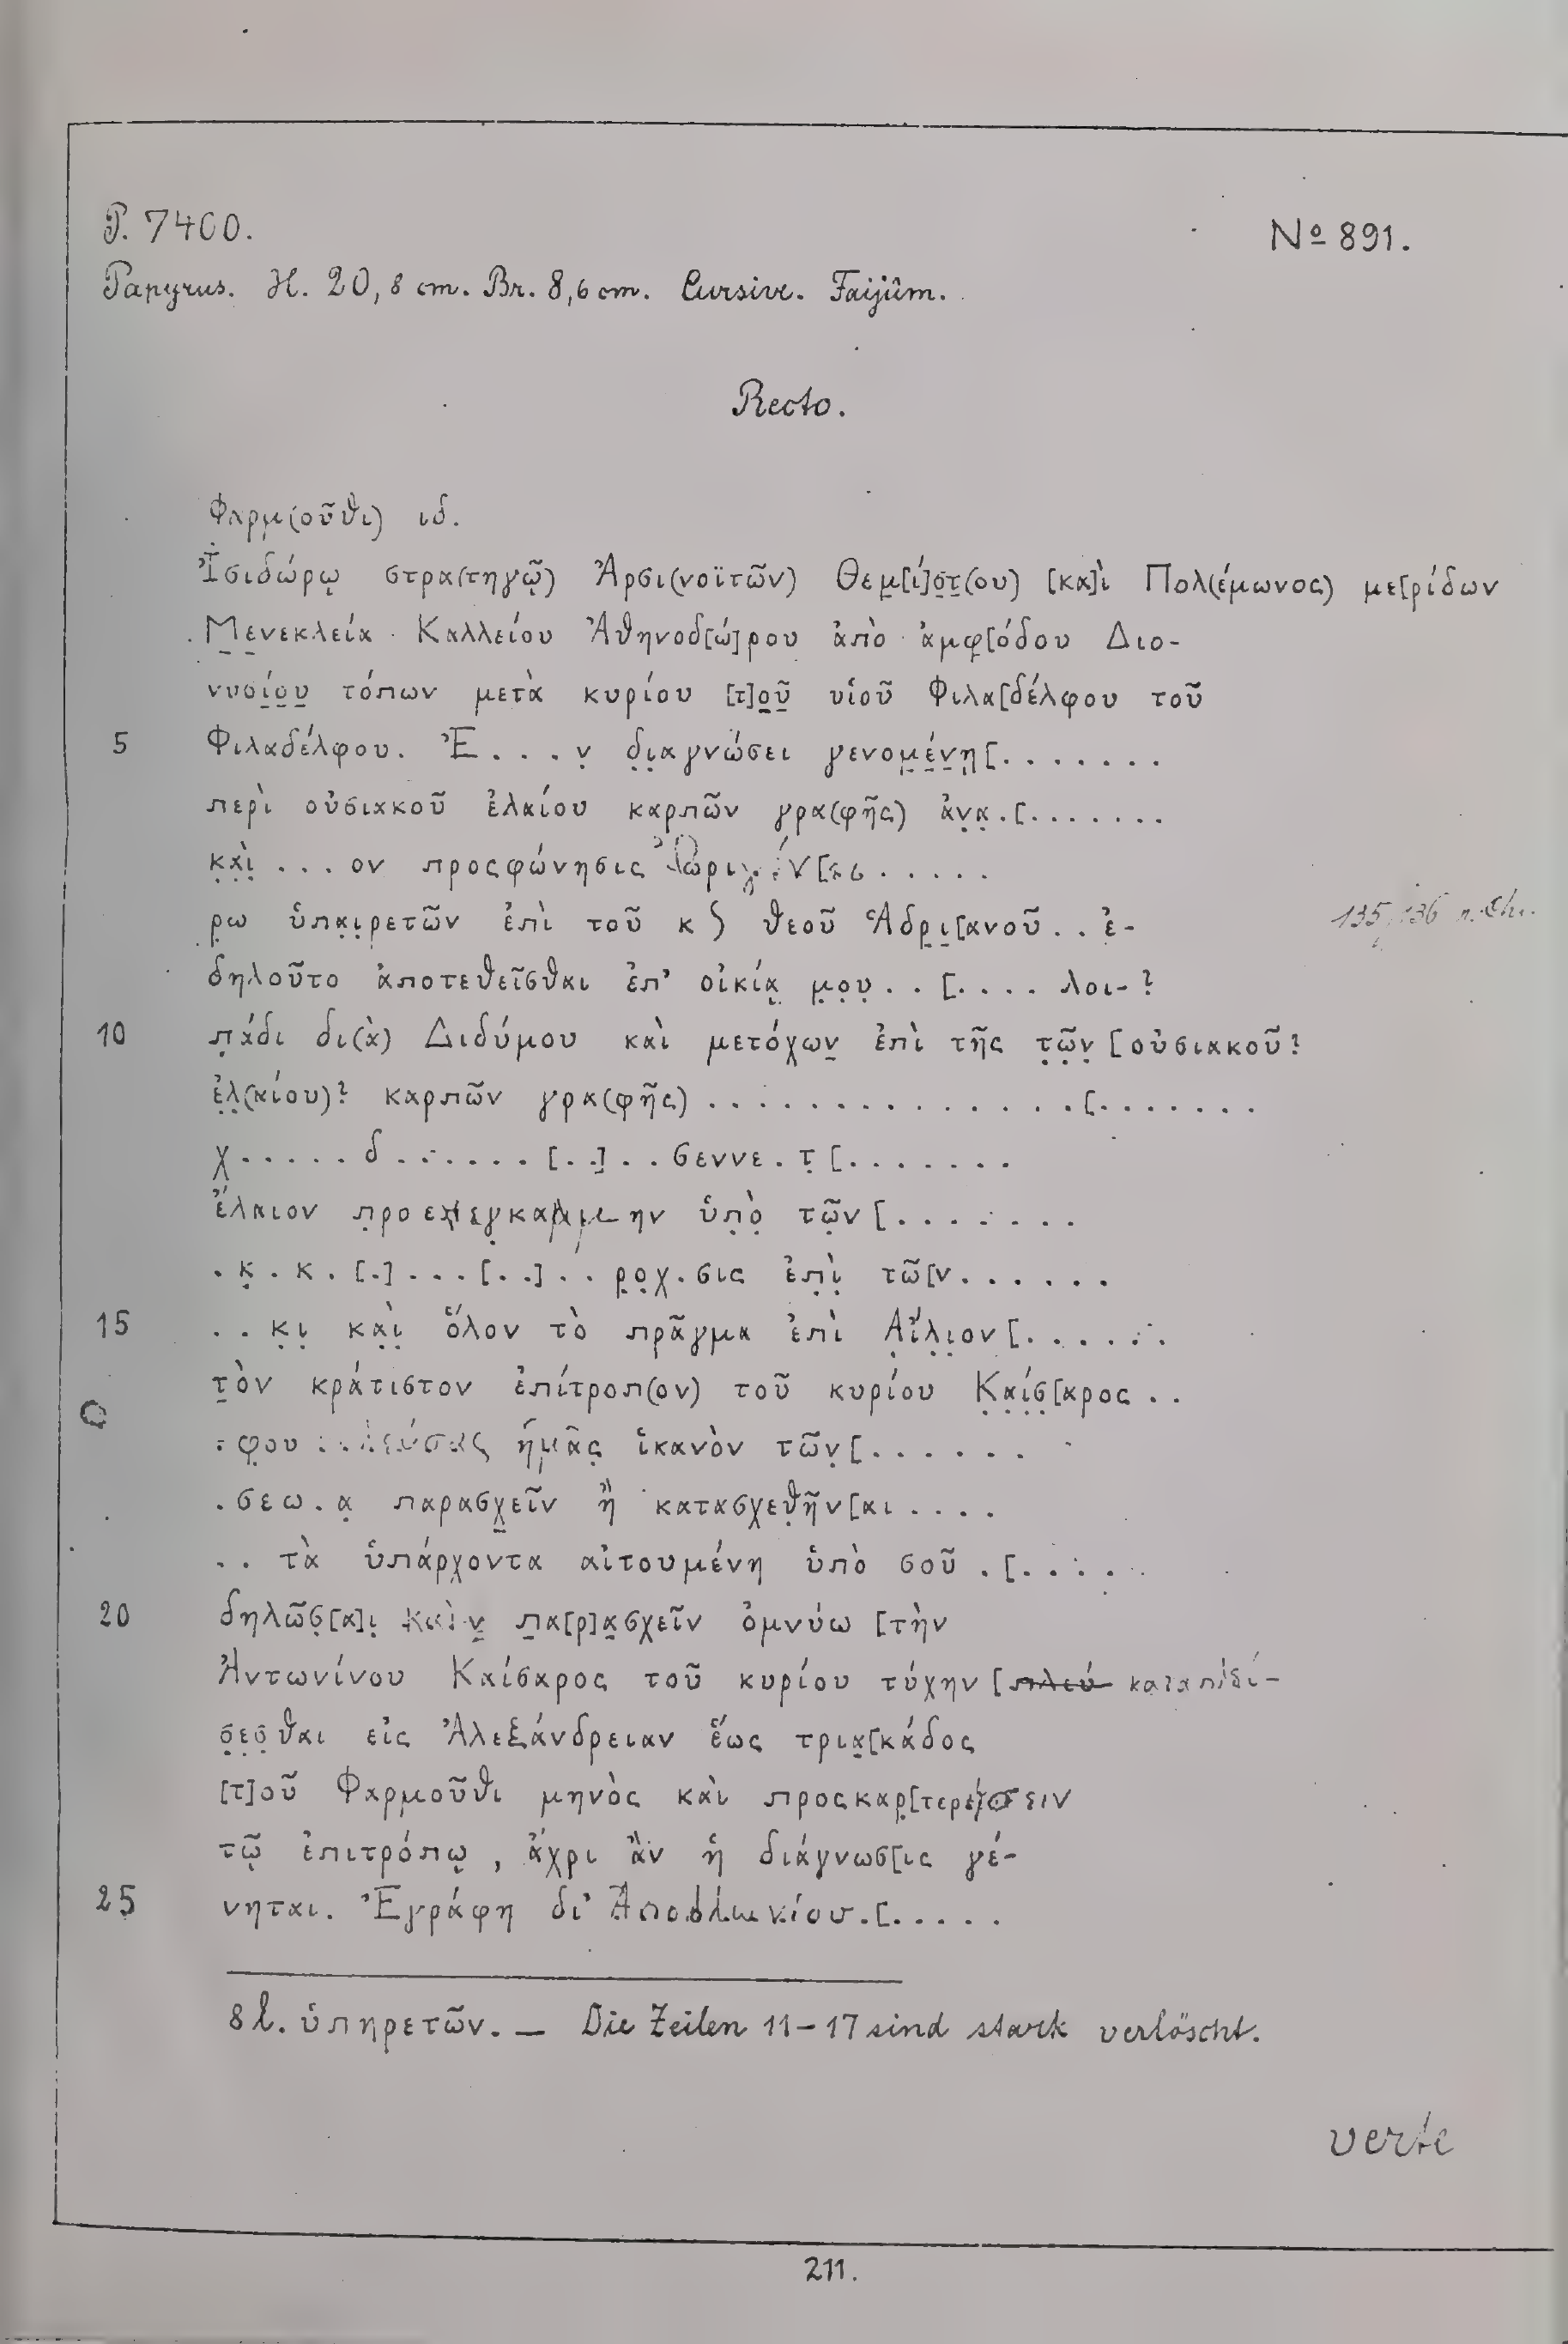 P. 7400.
Nº 891.
Papyrus. H. 20,8 cm. Br. 8,6 cm. Cursive. Faijûm.
Recto.
Φαρμ(οῦθι) ιδ.
Ἰσιδώρῳ στρα(τηγῷ) Ἀρσι(νοϊτῶν) Θεμ̣[ί]σ̣τ̣(ου) [κα]ὶ Πολ(έμωνος) με[ρίδων
Μ̣ε̣νεκλεία Καλλείου Ἀθηνοδ[ώ]ρου ἀπὸ ἀμφ[όδου Διο-
νυσ̣ί̣ο̣υ̣ τόπων μετὰ κυρίου [τ]ο̣ῦ̣ υἱοῦ Φιλα[δέλφου τοῦ
5 Φιλαδέλφου. Ἐ . . . ν̣ δ̣ι̣αγνώσει γενομ̣έ̣ν̣η̣[. . . . . . .
περὶ οὐσιακοῦ ἐλαίου καρπῶν γρα(φῆς) ἀν̣α̣.[. . . . . . .
κ̣α̣ὶ̣ . . . ον προςφώνησις
ρ̣ω ὑπα̣ι̣ρετῶν ἐπὶ τοῦ κ ) θεοῦ Ἁδρ̣ι̣[ανοῦ . . ἐ-
135/136 n. Chr.
δηλοῦτο ἀποτεθεῖσθαι ἐπ' οἰκίᾳ̣ μ̣ο̣υ̣ . . [. . . . λοι- ?
10 π̣άδι δι(ὰ) Διδύμου καὶ μετόχων̣ ἐπὶ τῆς τ̣ῶ̣ν̣ [οὐσιακοῦ?
ἐ̣λ̣(αίου)? καρπῶν γρα(φῆς) . . . . . . . . . . . . . .[. . . . . . .
χ̣ . . . . . δ . . . . . . . [. .] . . σεννε . τ̣ [. . . . . . .
ἔλαιον ὑπ̣ὸ̣ τῶ̣ν [. . . . . . .
. κ̣ . κ . [.] . . . [. .] . . ρ̣ο̣χ . σις ἐπ̣ὶ̣ τῶ[ν . . . . . .
15 . . κ̣ι̣ κα̣ὶ̣ ὅλον τὸ πρᾶγμα ἐπὶ Α̣ἴλ̣ι̣ον [. . . . . .
τ̣ὸν κράτιστον ἐπίτροπ(ον) τοῦ κυρίου Κ̣α̣ί̣σ̣[αρος . .
. φ̣ου ἡμᾶς̣ ἱκανὸν τῶν̣ [. . . . . .
. σεω . α̣ παρασχ̣εῖν ἢ κατασχεθ̣ῆν[αι . . . .
. . τὰ ὑπάρχοντα αἰτουμένη ὑπὸ σοῦ . [. . . .
20 δηλῶσ̣[α]ι̣ π̣α[ρ]α̣σχεῖν ὀμνύω [τὴν
Ἀντωνίνου Καίσαρος τοῦ κυρίου τύχην [πλεύ
σ̣ε̣σ̣θαι εἰς Ἀλεξάνδρειαν ἕως τρια̣[κάδος
[τ]οῦ Φαρμοῦθι μηνὸς καὶ προςκαρ̣[τερήσειν
τῷ ἐπιτρόπῳ, ἄχρι ἂν ἡ διάγνωσ[ις γέ-
25 νηται. Ἐγράφη δι' Ἀπολλωνίου . [. . . . .
8 l. ὑπηρετῶν. — Die Zeilen 11–17 sind stark verlöscht.
verte
211.